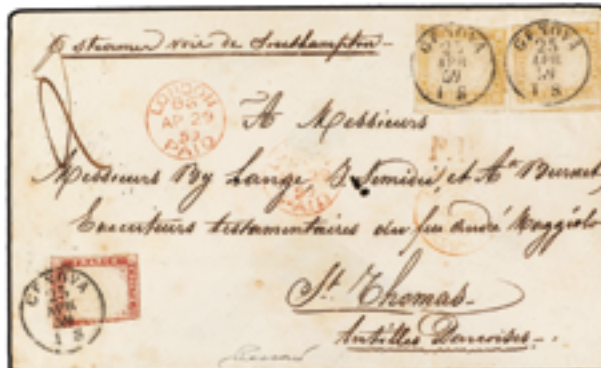 steamer voie de Southampton
GENOVA
25
APR
59
1 S
GENOVA
25
APR
59
1 S
LONDON
AP 29
59
PAID
A Messieurs
Messieurs By Lange, et Burnet
Executeurs testamentaires du feu André Maggiolo
St. Thomas
Antilles Danoises
FRANCO
GENOVA
25
APR
59
1 S